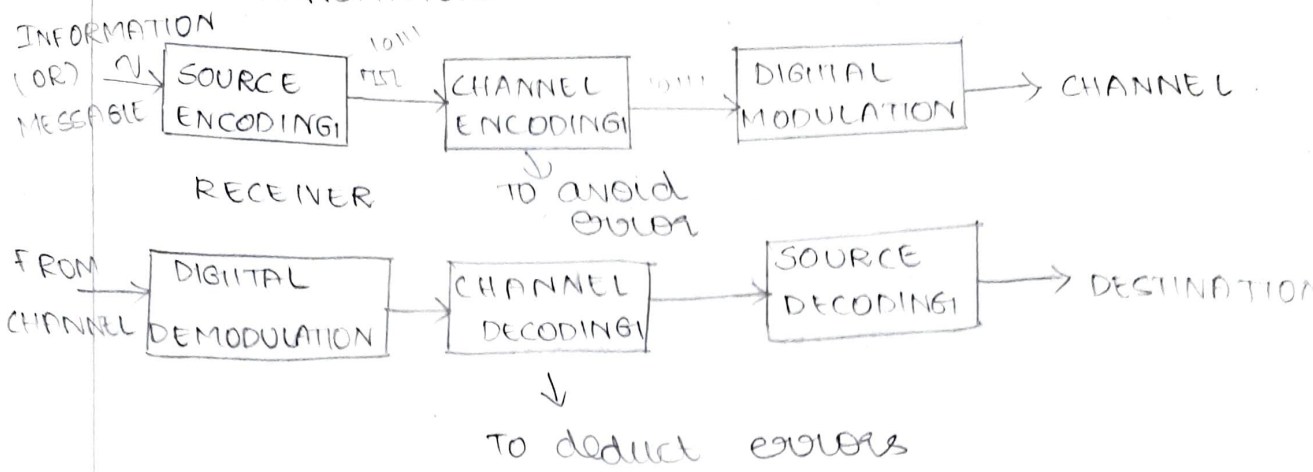 INFORMATION
(OR)
MESSAGE
SOURCE
ENCODING
10111
CHANNEL
ENCODING
10111
DIGITAL
MODULATION
CHANNEL.
RECEIVER
TO avoid
error
FROM
CHANNEL
DIGITAL
DEMODULATION
CHANNEL
DECODING
SOURCE
DECODING
DESTINATION
TO deduct errors